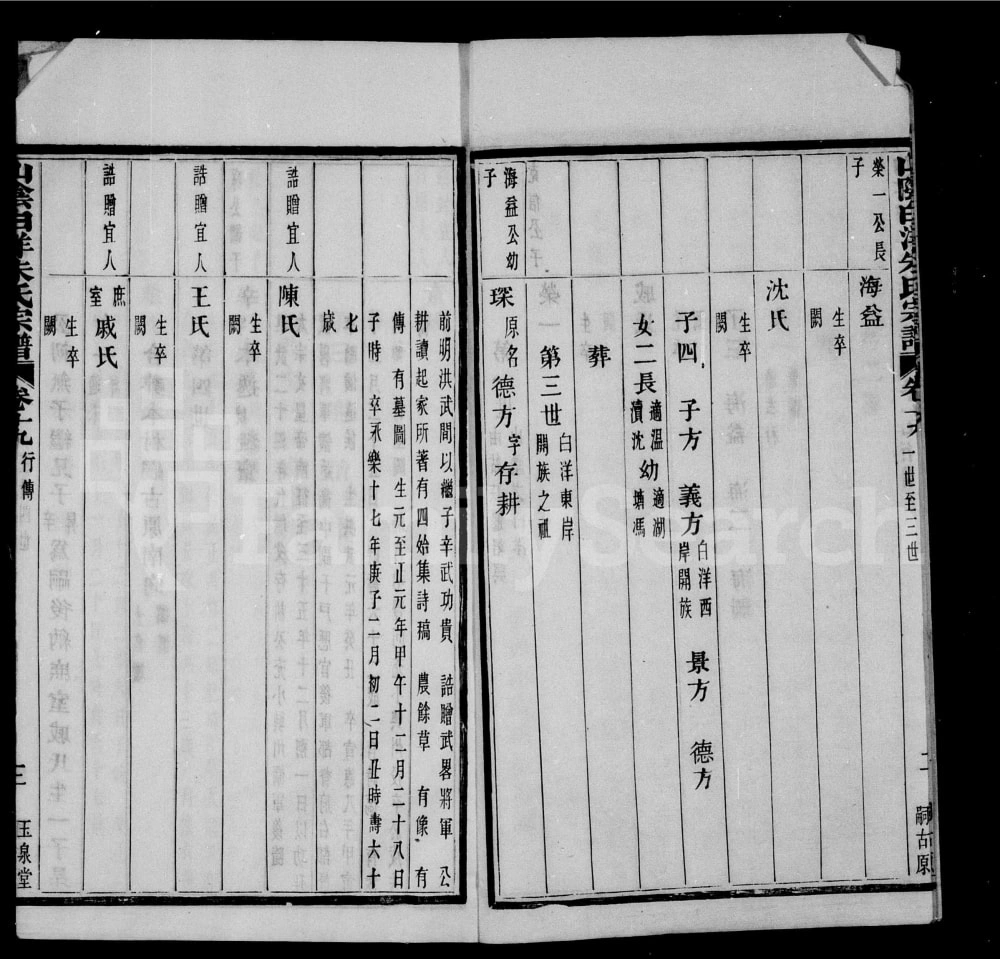 山陰白洋朱氏宗譜
卷十九
一世至三世
二
嗣古原
榮一公長
子
海益
生卒
闕
沈氏
生卒
闕
子四 子方 義方 白洋西岸開族 景方 德方
女二長適溫瀆沈幼適湖塘馮
葬
第三世 白洋東岸開族之祖
海益公幼
子
琛原名德方字存耕
前明洪武間以繼子辛武功貴 誥贈武畧將軍 公
耕讀起家所著有四始集詩稿 農餘草 有像 有
傳 有墓圖 生元至正元年甲午十二月二十八日
子時 卒永樂十七年庚子二月初二日丑時壽六十
七
歲
誥贈宜人
陳氏
生卒
闕
誥贈宜人
王氏
生卒
闕
誥贈宜人
庶室戚氏
生卒
闕
山陰白洋朱氏宗譜
卷十九
行傳
三
玉泉堂